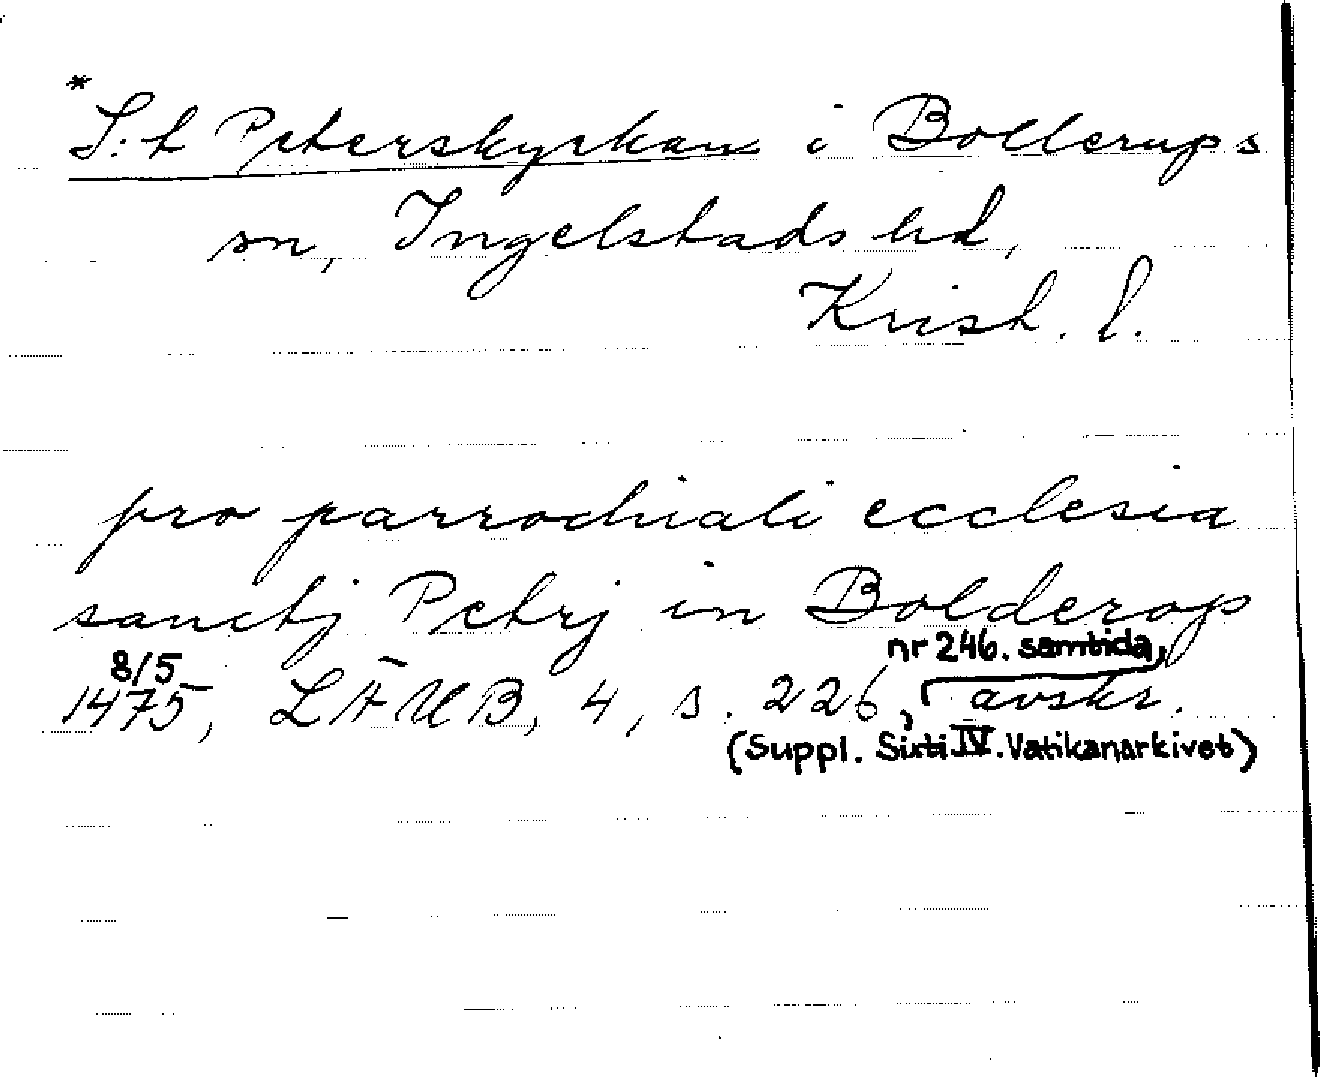 *
S:t Peterskyrkan i Bollerups
sn, Ingelstads hd,
Krist. l.
pro parrochiali ecclesia
sanctj Petrj in Bolderop
8/5 nr 246. samtida,
1475, LÄUB, 4, s. 226, avskr.
(Suppl. Sixti IV. Vatikanarkivet)